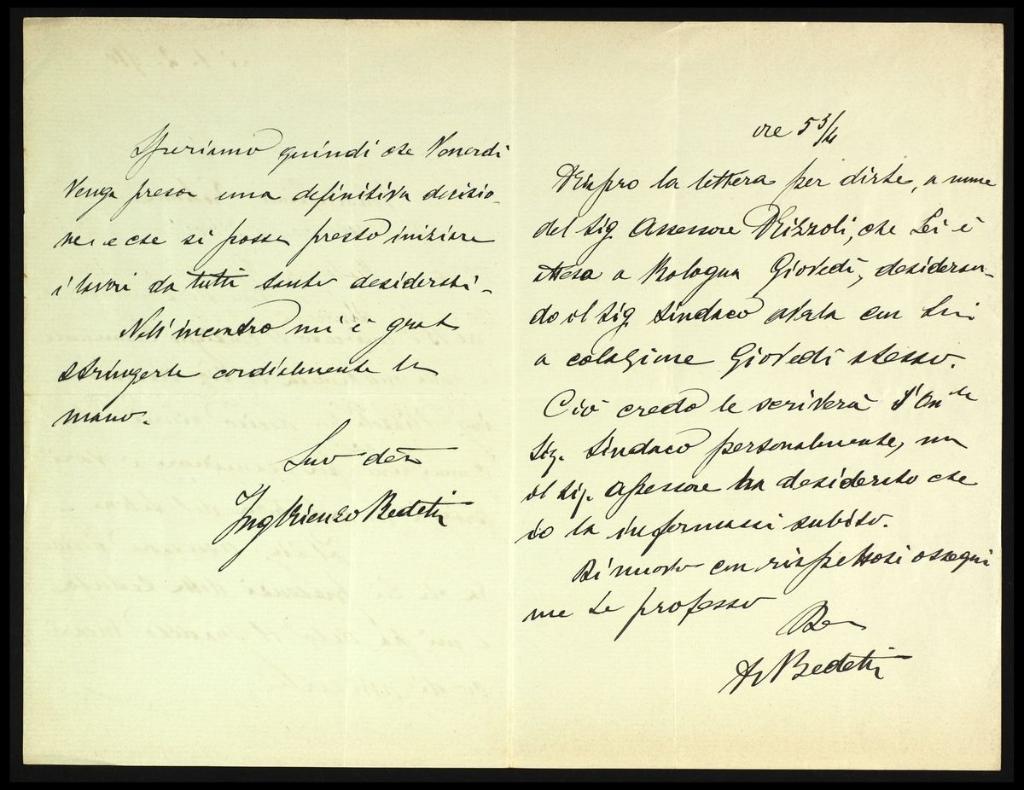 Speriamo quindi che Venerdì
venga presa una definitiva decisio-
ne, e che si possa presto iniziare
i lavori da tutti tanto desiderati.
Nell'incontro mi è grato
stringerle cordialmente la
mano.
Suo dev
Ing Rienzo Bedetti
ore 5 3/4
Riapro la lettera per dirle, a nome
del Sig. Assessore Rizzoli, che Lei è
attesa a Bologna Giovedì, desideran-
do il Sig. Sindaco averla con Lui
a colazione Giovedì stesso.
Ciò credo le scriverà l'On.le
Sig. Sindaco personalmente, ma
il Sig. Assessore ha desiderato che
io la informassi subito.
Di nuovo con rispettosi ossequi
me Le professo
Bedetti